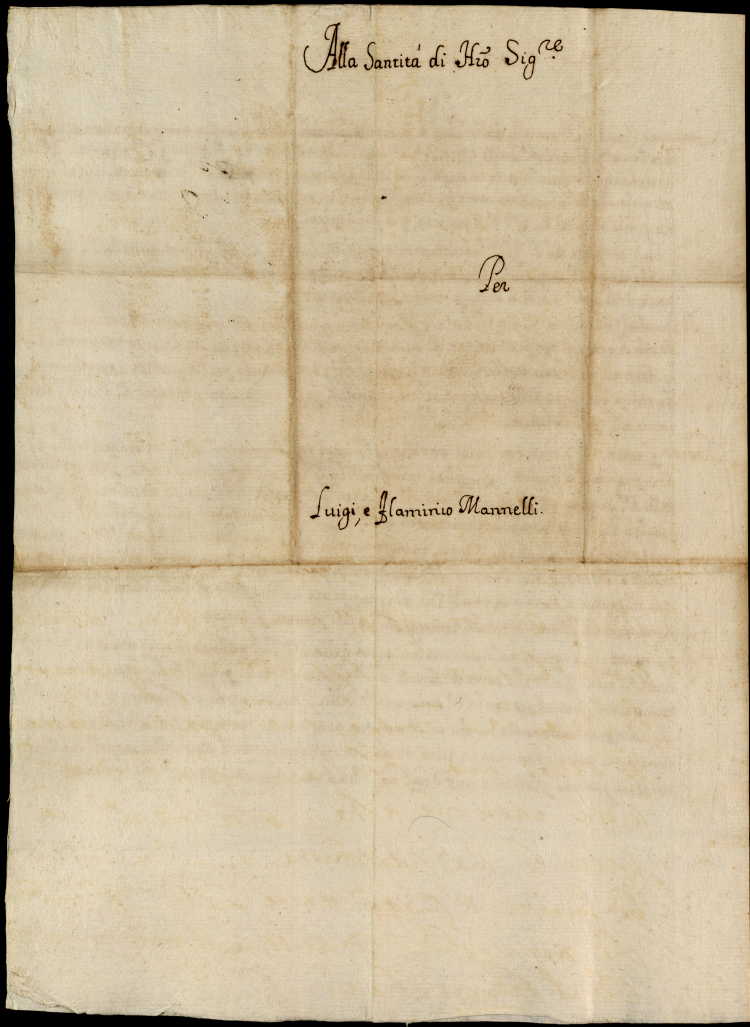 Alla Santità di Nrō Sigre
Per
Luigi, e Flaminio Mannelli.